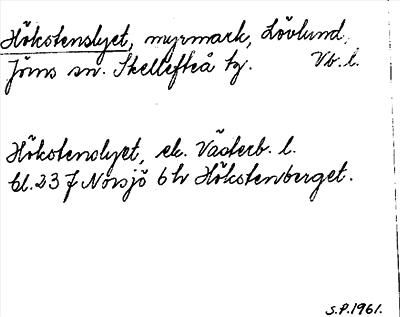 Hökstenslyet, myrmark, Lövlund,
Jörns sn. Skellefteå tg. Vb. l.
Hökstenslyet, ek. Västerb. l.
bl. 23 J Norsjö 6h Hökstenberget.
S.P. 1961.